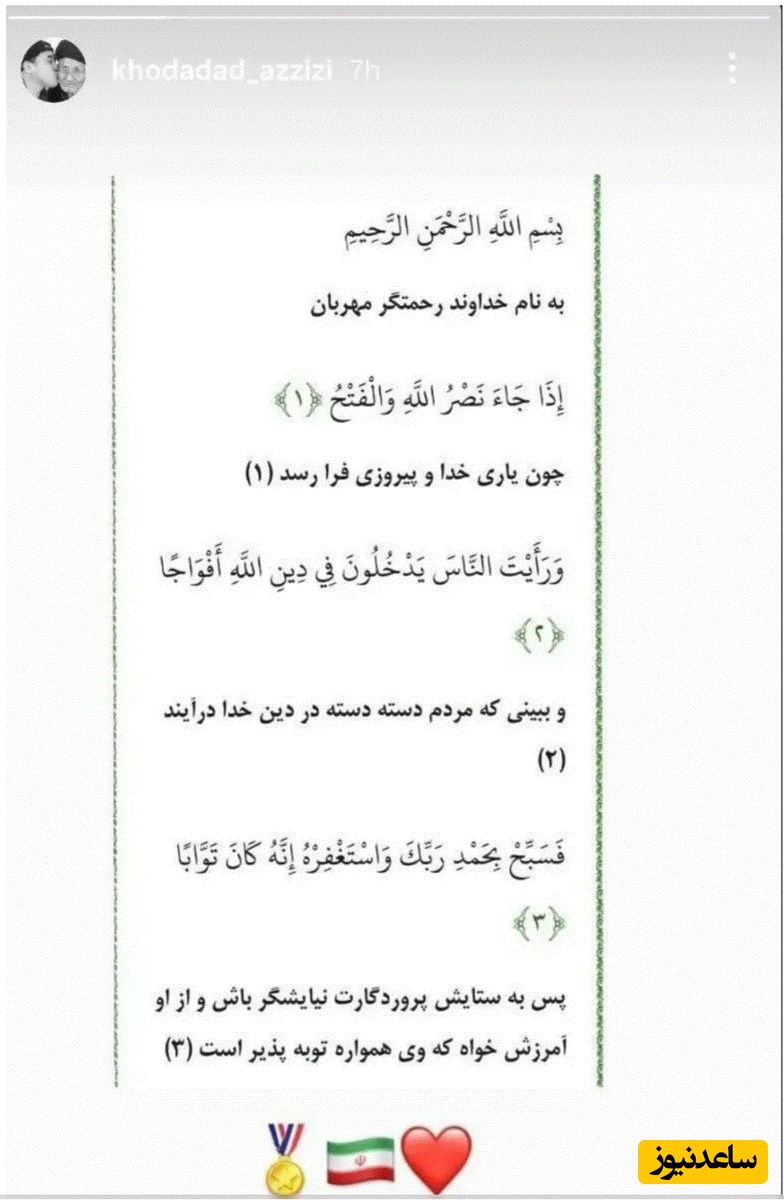 khodadad_azzizi 7h
بِسْمِ اللَّهِ الرَّحْمَنِ الرَّحِيمِ
به نام خداوند رحمتگر مهربان
إِذَا جَاءَ نَصْرُ اللَّهِ وَالْفَتْحُ ﴿١﴾
چون یاری خدا و پیروزی فرا رسد (۱)
وَرَأَيْتَ النَّاسَ يَدْخُلُونَ فِي دِينِ اللَّهِ أَفْوَاجًا
﴿٢﴾
و ببینی که مردم دسته دسته در دین خدا درآیند
(۲)
فَسَبِّحْ بِحَمْدِ رَبِّكَ وَاسْتَغْفِرْهُ إِنَّهُ كَانَ تَوَّابًا
﴿٣﴾
پس به ستایش پروردگارت نیایشگر باش و از او
آمرزش خواه که وی همواره توبه پذیر است (۳)
ساعدنیوز